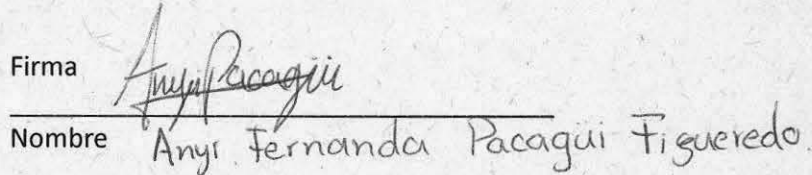 Firma Anyi Pacagüi
Nombre Anyi Fernanda Pacagüi Figueredo.